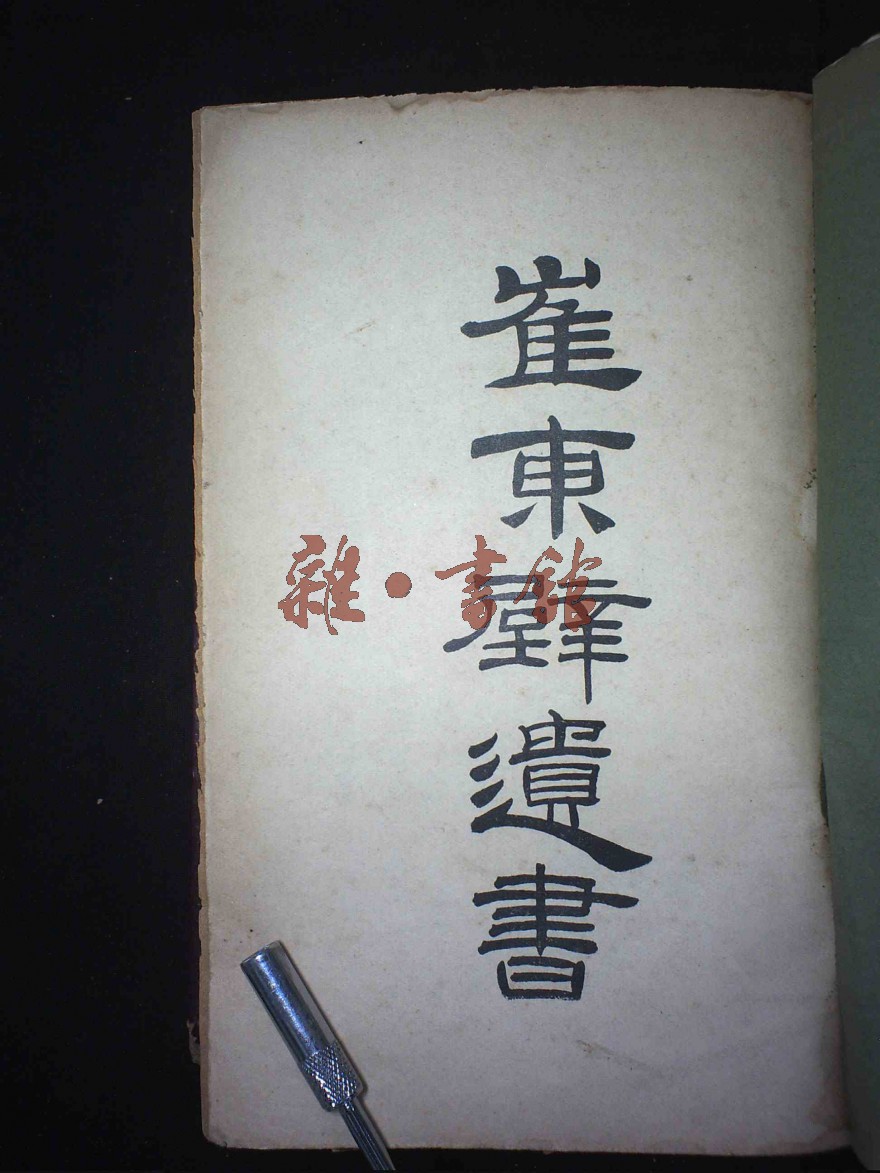 崔東壁遺書
雜·書館